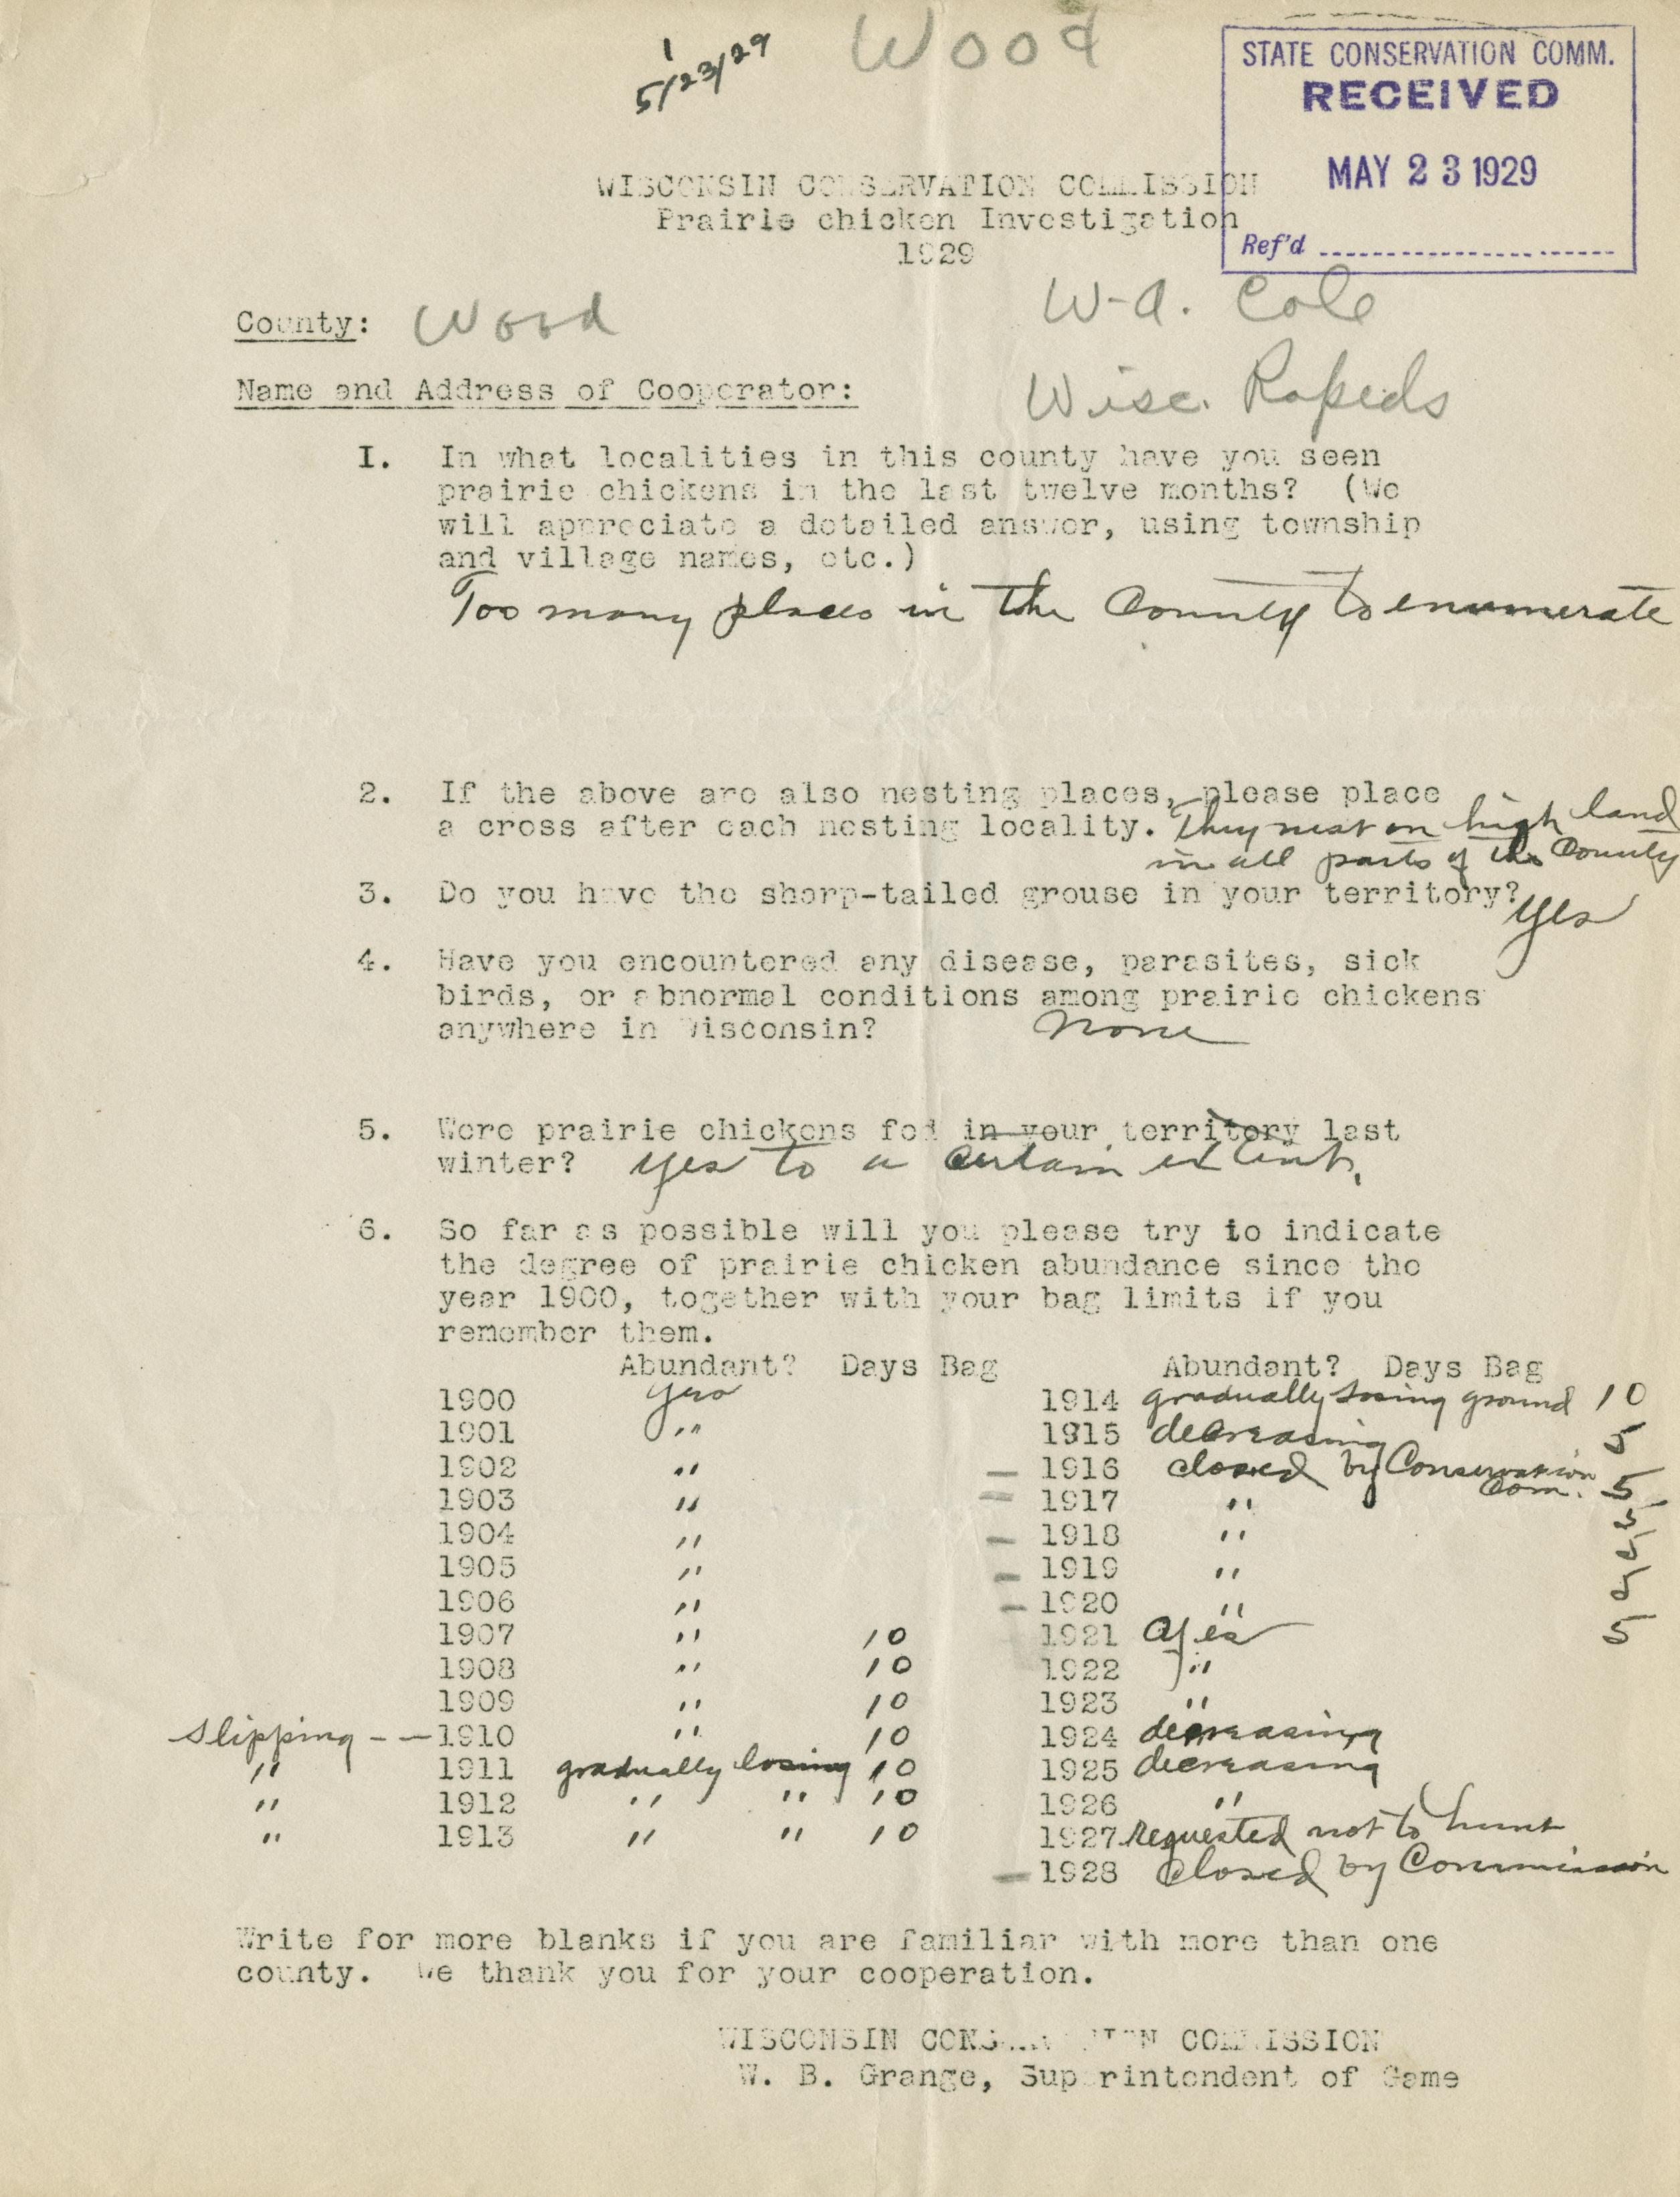 Wood
1
5/23/29
STATE CONSERVATION COMM.
RECEIVED
MAY 23 1929
Ref'd
WISCONSIN CONSERVATION COMMISSION
Prairie chicken Investigation
1929
County: Wood
W-A. Cole
Name and Address of Cooperator:
Wisc. Rapids
I. In what localities in this county have you seen
prairie chickens in the last twelve months? (We
will appreciate a detailed answer, using township
and village names, etc.)
Too many places in the County to enumerate
2. If the above are also nesting places, please place
a cross after each nesting locality. They nest on high land
in all parts of the County
3. Do you have the sharp-tailed grouse in your territory? Yes
4. Have you encountered any disease, parasites, sick
birds, or abnormal conditions among prairie chickens
anywhere in Wisconsin? None
5. Were prairie chickens fed in your territory last
winter? Yes to a certain extent.
6. So far as possible will you please try to indicate
the degree of prairie chicken abundance since the
year 1900, together with your bag limits if you
remember them.
Abundant? Days Bag
1900 yes
1901 "
1902 "
1903 "
1904 "
1905 "
1906 "
1907 " 10
1908 " 10
1909 " 10
Slipping -- 1910 " 10
" 1911 gradually losing 10
" 1912 " " 10
" 1913 " " 10
Abundant? Days Bag
1914 gradually losing ground 10
1915 decreasing 5
— 1916 closed by Conservation Com. 5
— 1917 "
— 1918 "
— 1919 "
— 1920 "
1921 Yes 5
1922 "
1923 "
1924 decreasing
1925 decreasing
1926 "
1927 requested not to hunt
— 1928 closed by Commission
Write for more blanks if you are familiar with more than one
county. We thank you for your cooperation.
WISCONSIN CONSERVATION COMMISSION
W. B. Grange, Superintendent of Game